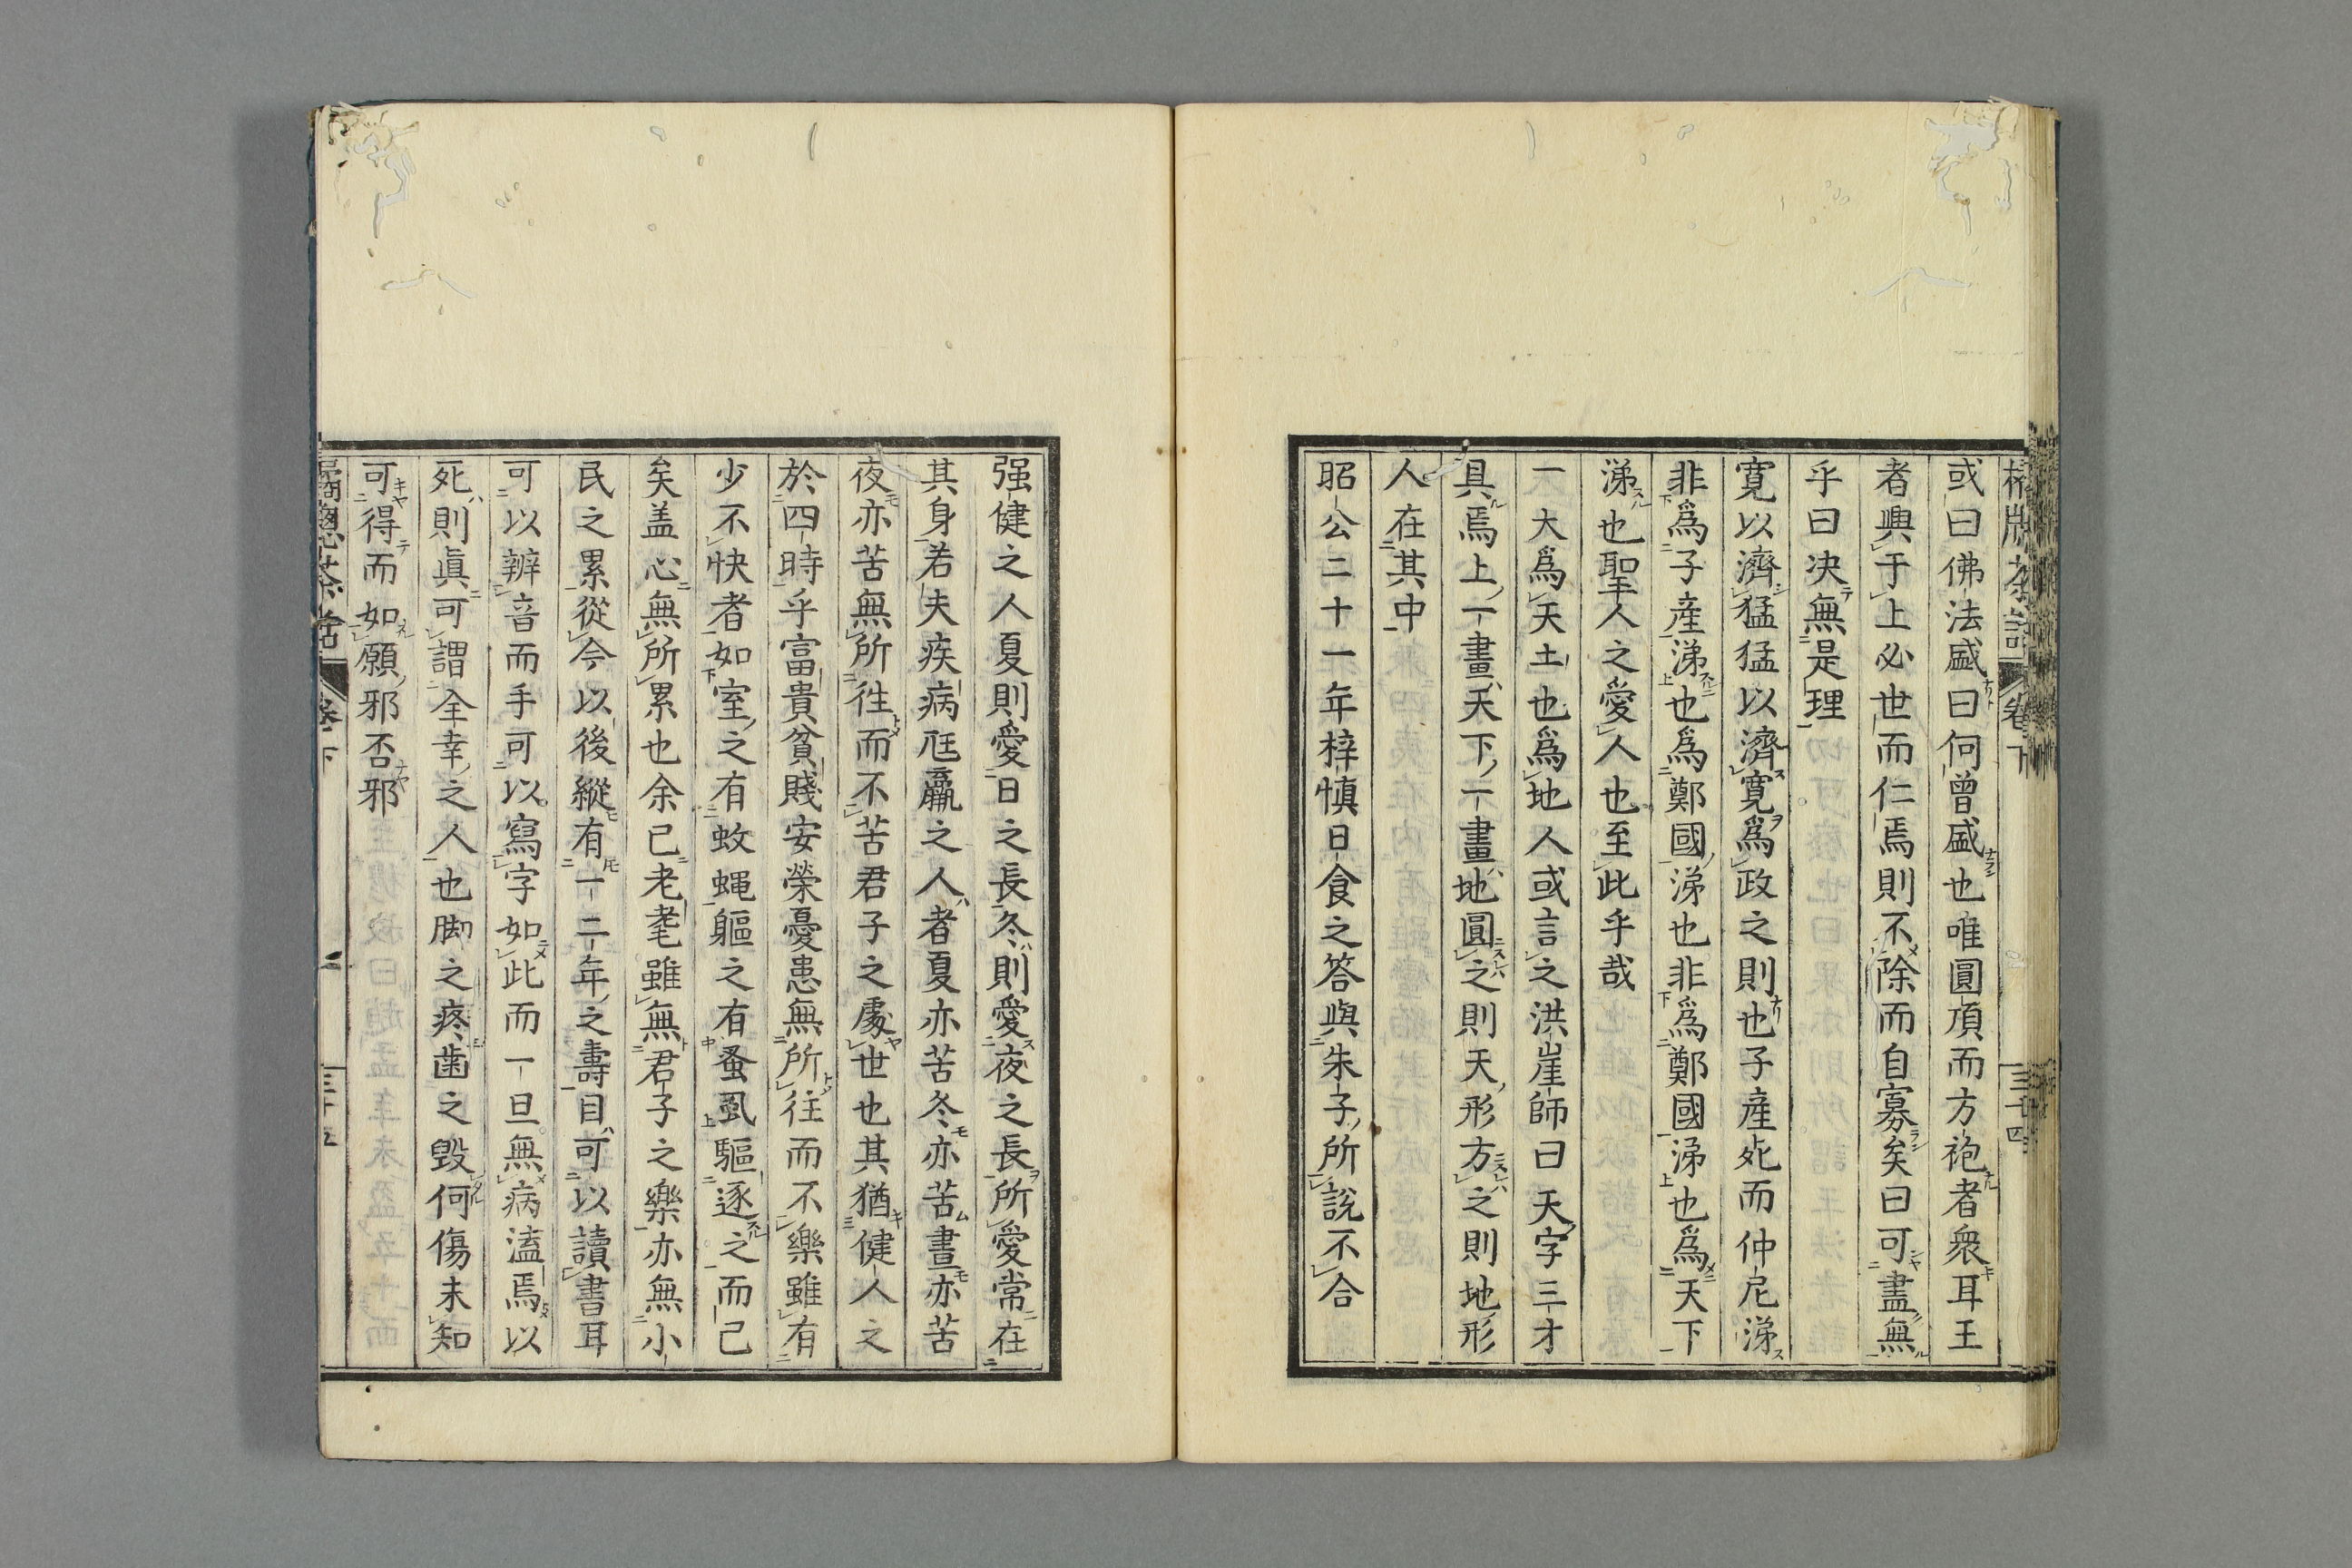 茶話 卷下 三十四
或曰佛法盛曰何曾盛也唯圓頂而方袍者衆耳王
者興于上必世而仁焉則不除而自寡矣曰可盡無
乎曰决無是理
寬以濟猛猛以濟寬爲政之則也子產死而仲尼涕
非爲子產涕也爲鄭國涕也非爲鄭國涕也爲天下
涕也聖人之愛人也至此乎哉
一大爲天土也爲地人或言之洪崖師曰天字三才
具焉上一畫天下一畫地圓之則天形方之則地形
人在其中
昭公二十一年梓慎日食之答與朱子所說不合
强健之人夏則愛日之長冬則愛夜之長所愛常在
其身若夫疾病尫羸之人者夏亦苦冬亦苦晝亦苦
夜亦苦無所徃而不苦君子之處世也其猶健人之
於四時乎富貴貧賤安榮憂患無所往而不樂雖有
少不快者如室之有蚊蝿軀之有蚤虱驅逐之而已
矣盖心無所累也余已老耄雖無君子之樂亦無小
民之累從今以後縱有一二年之壽目可以讀書耳
可以辨音而手可以寫字如此而一旦無病溘焉以
死則眞可謂全幸之人也脚之疼齒之毀何傷未知
可得而如願邪否邪
茶話 卷下 三十五